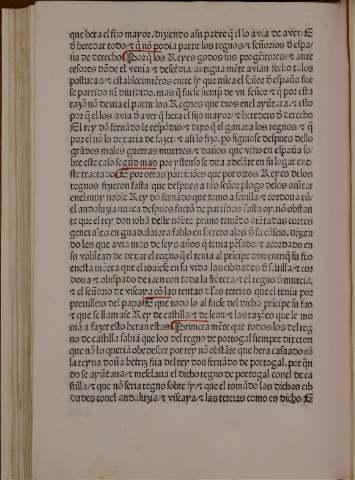 que hera el fijo mayor. diziendo asu padre q̃ el lo avia de aver. E
d̃ heredar todo ⁊ q̃ nõ podia partir los regnos ⁊ señorios d̃ espa
ña de derecho Porq̃ los Reyes godos sus progẽitores ⁊ ante
cesores dõde el venia ⁊ desçẽdia antigua mẽte avian fecho
posturas ⁊ establecimiẽtos entre sy que nũca el señor d̃ españa fue
se partido nin dividido. mas q̃ fuese siẽp̃ de vn señor ⁊ q̃ por esta
razõ nõ devia el partir los Regnos que dios enel ayũtara. ⁊ esto
por q̃ el los avia d̃ aver q̃ hera el fijo mayor ⁊ heredero d̃ derecho
El rey dõ fernãdo le respõdio ⁊ dixo q̃ el ganara los regnos ⁊ q̃
por el nõ lo dexaria de fazer. ⁊ asi lo fizo. po siguiose despues dello
grãdes males guerras muertes ⁊ daños que vino en españa so
bre este caso segũd mas por ystenso se dira adelãte en su logar en
te tractado E por otras particiões que por otros Reyes delos
regnos fizieron fasta que despues a nr̃o señor plogo delos aũtar
enel muy noble Rey dõ fernãdo que tomo a seuilla ⁊ cordoua cõ
el andaluzia nunca despues fuerõ de partidos fasta oy. nõ obstan
te que el rey don iohã deste nõbre primo teniẽdo aũtadas cortes
generales en guadalaiara fablo en secreto alos d̃ su cõseio. dizien
do les que avia mas de seys años q̃ tenia pẽsado ⁊ acordado en
su volũtad de dexar el regno q̃ el tenia al pricipe don enrriq̃ su fijo
enesta mãera que el touiese en su vida las cibdades d̃ seuilla ⁊ cor
doua ⁊ obispado de iaen con toda la frõtera ⁊ el regno d̃ murcia.
⁊ el señorio de viscaya cõ las rentas d̃ las tercias que el tenia por
preuillejo del papa E que todo lo al fuese del dicho pricipe su fijo
⁊ que se llamase Rey de castilla ⁊ de leon ⁊ las razões que le mo
niã a fazer esto heran estas Primera mẽte que todos los del reg
no de castilla sabia que los del regno de portugal siempre dixeron
que nõ lo queriã obedescer por rey nõ obstãte que hera casado cõ
la reyna doña bẽtriz fija del rey don fernãdo de portugal. por q̃n
do se ayũtaua ⁊ mesclaua el dicho regno de portogal conel de ca
stilla ⁊ que nõ seria regno sobre sy ⁊ que el tomãdo las dichas cib
dades conel andaluzia ⁊ viscaya ⁊ las tercias como es dicho. E